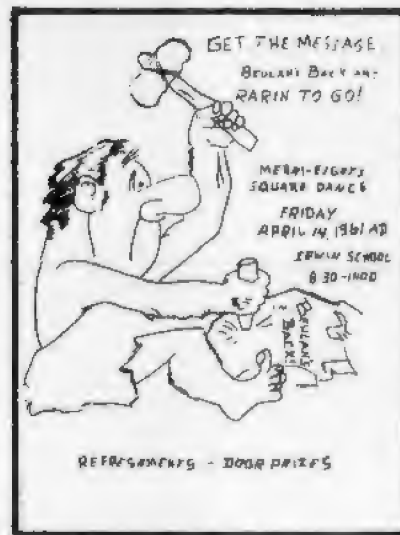 GET THE MESSAGE
BEULAH'S BACK AND
RARIN TO GO!
MERRI-EIGHTS
SQUARE DANCE
FRIDAY
APRIL 14, 1961 AD
IRWIN SCHOOL
8:30-1100
BEULAH'S
BACK!
REFRESHMENTS - DOOR PRIZES